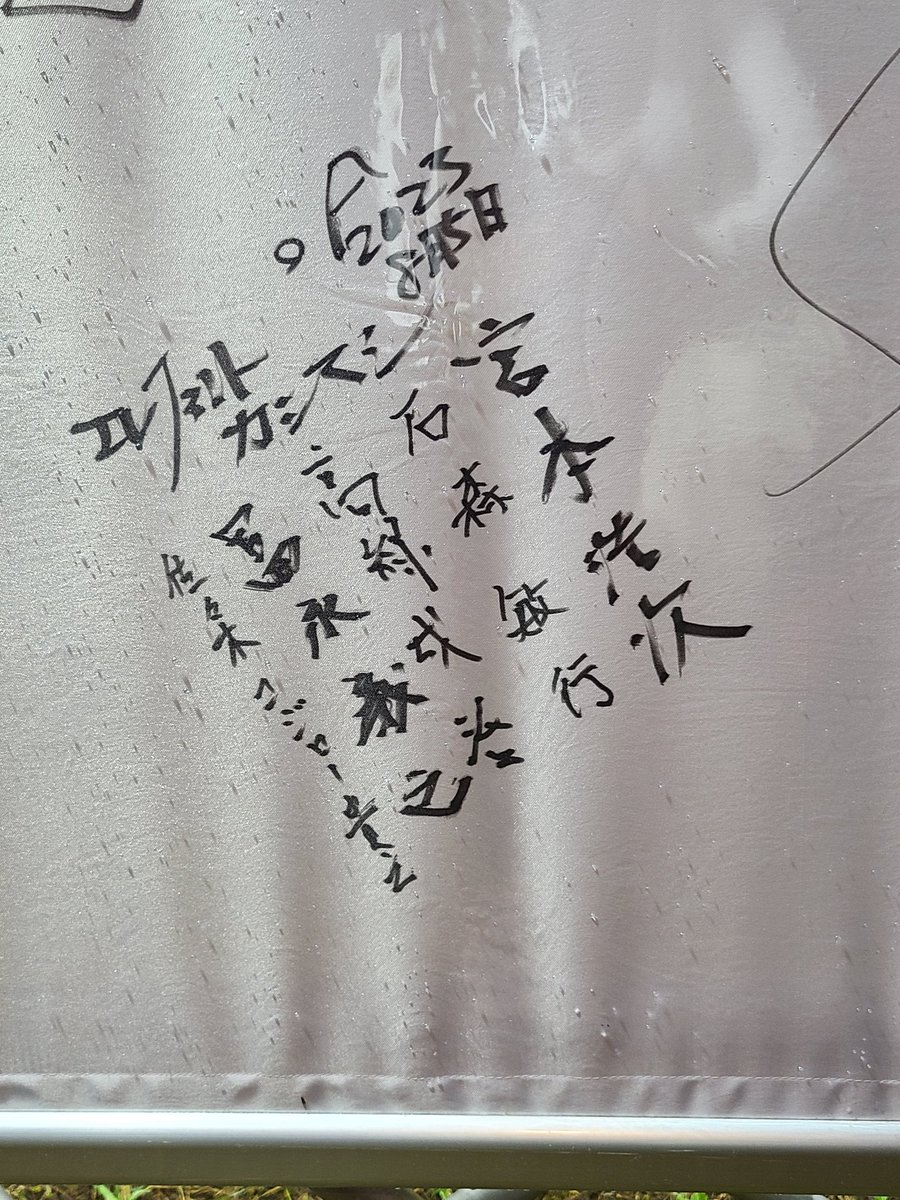 2023
8月5日
エレファントカシマシ
宮本浩次
石森敏行
高緑成治
冨永義之
佐々木コジロー貴之